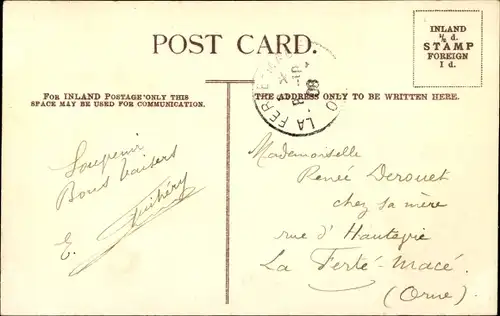 POST CARD.
INLAND
½ d.
STAMP
FOREIGN
1 d.
FOR INLAND POSTAGE ONLY THIS
SPACE MAY BE USED FOR COMMUNICATION.
THE ADDRESS ONLY TO BE WRITTEN HERE.
LA FERTE-MACE
08
Souvenir
Bons baisers
E.
Mademoiselle
Renée Derouet
chez sa mère
rue d'Hautevie
La Ferté-Macé.
(Orne)